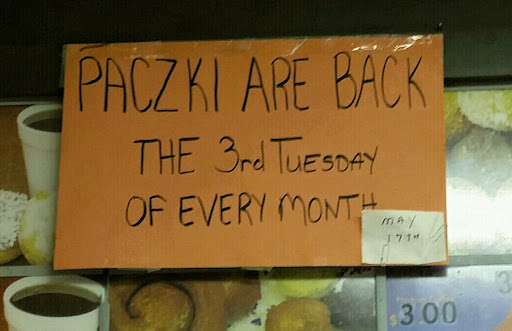 PACZKI ARE BACK
THE 3rd TUESDAY
OF EVERY MONTH
MAY
17TH
3
300